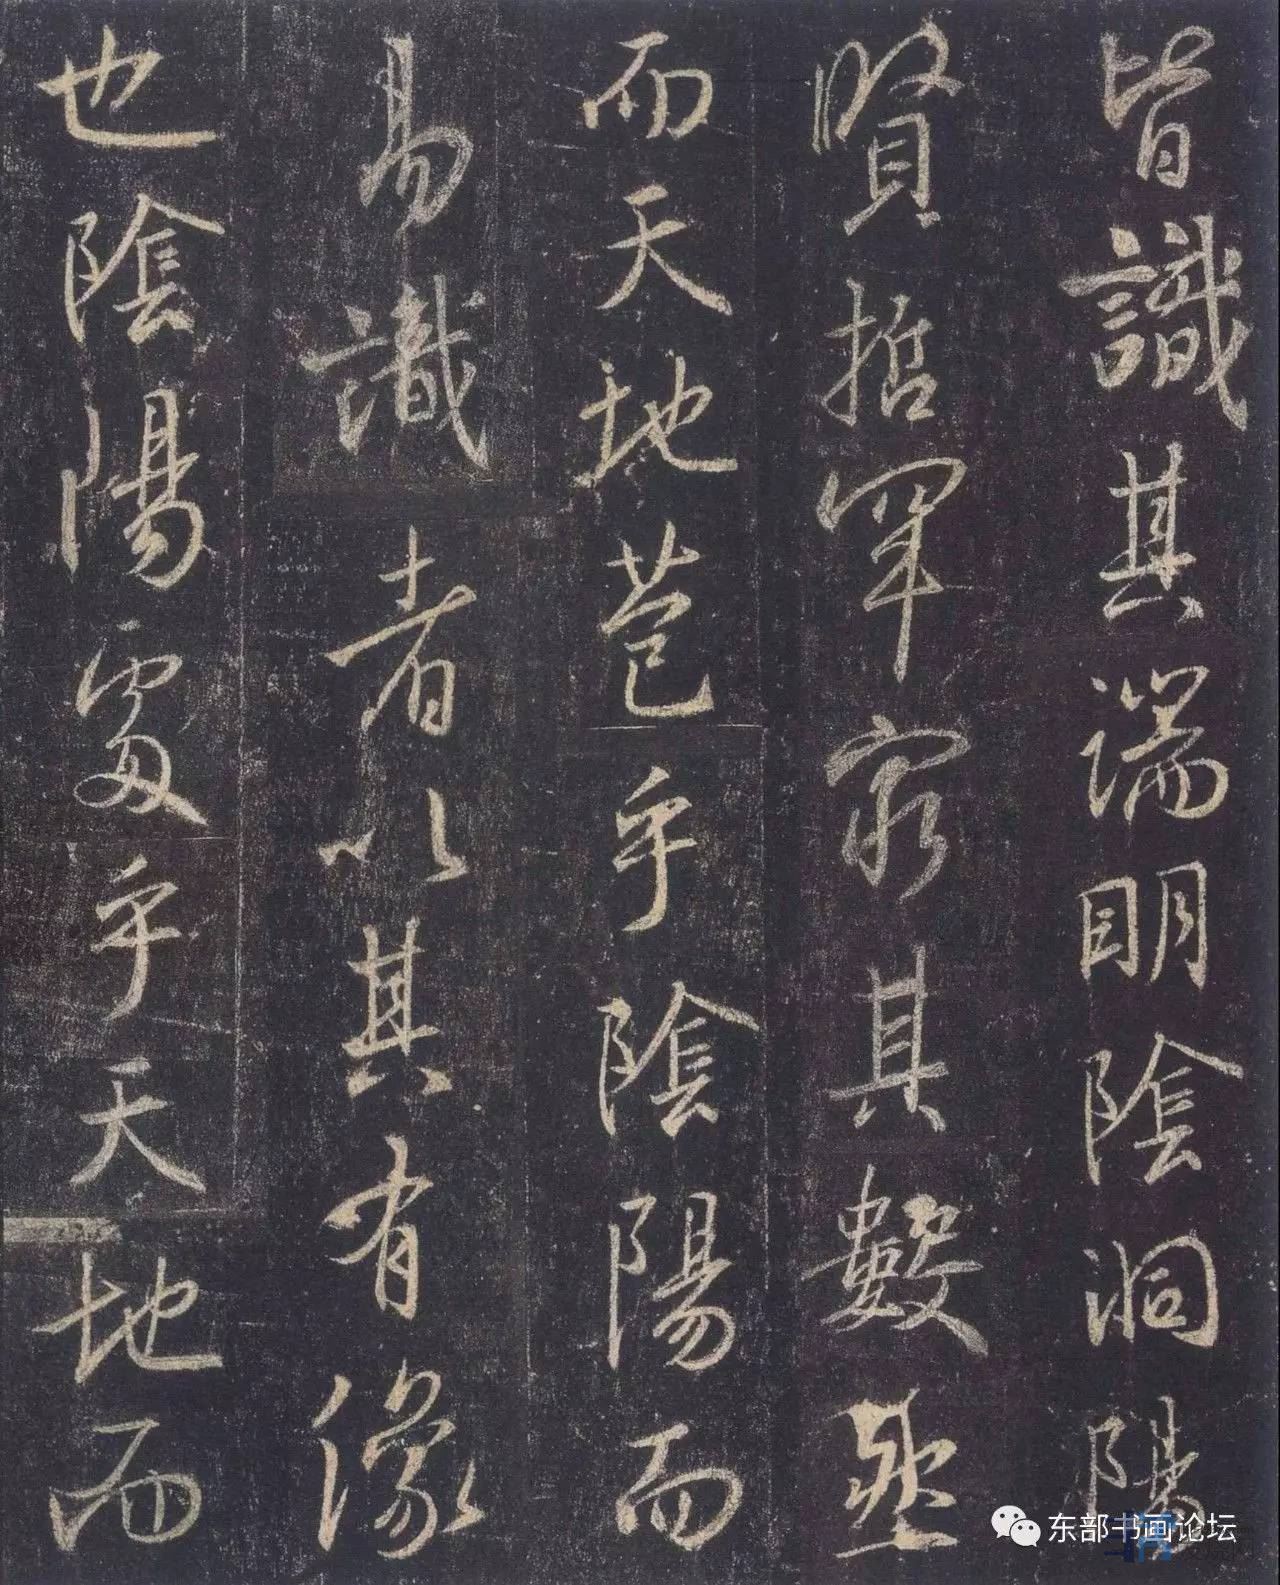 皆識其端明陰洞陽
賢哲罕窮其數然
而天地苞乎陰陽而
易識者以其有像
也陰陽處乎天地而
东部书画论坛